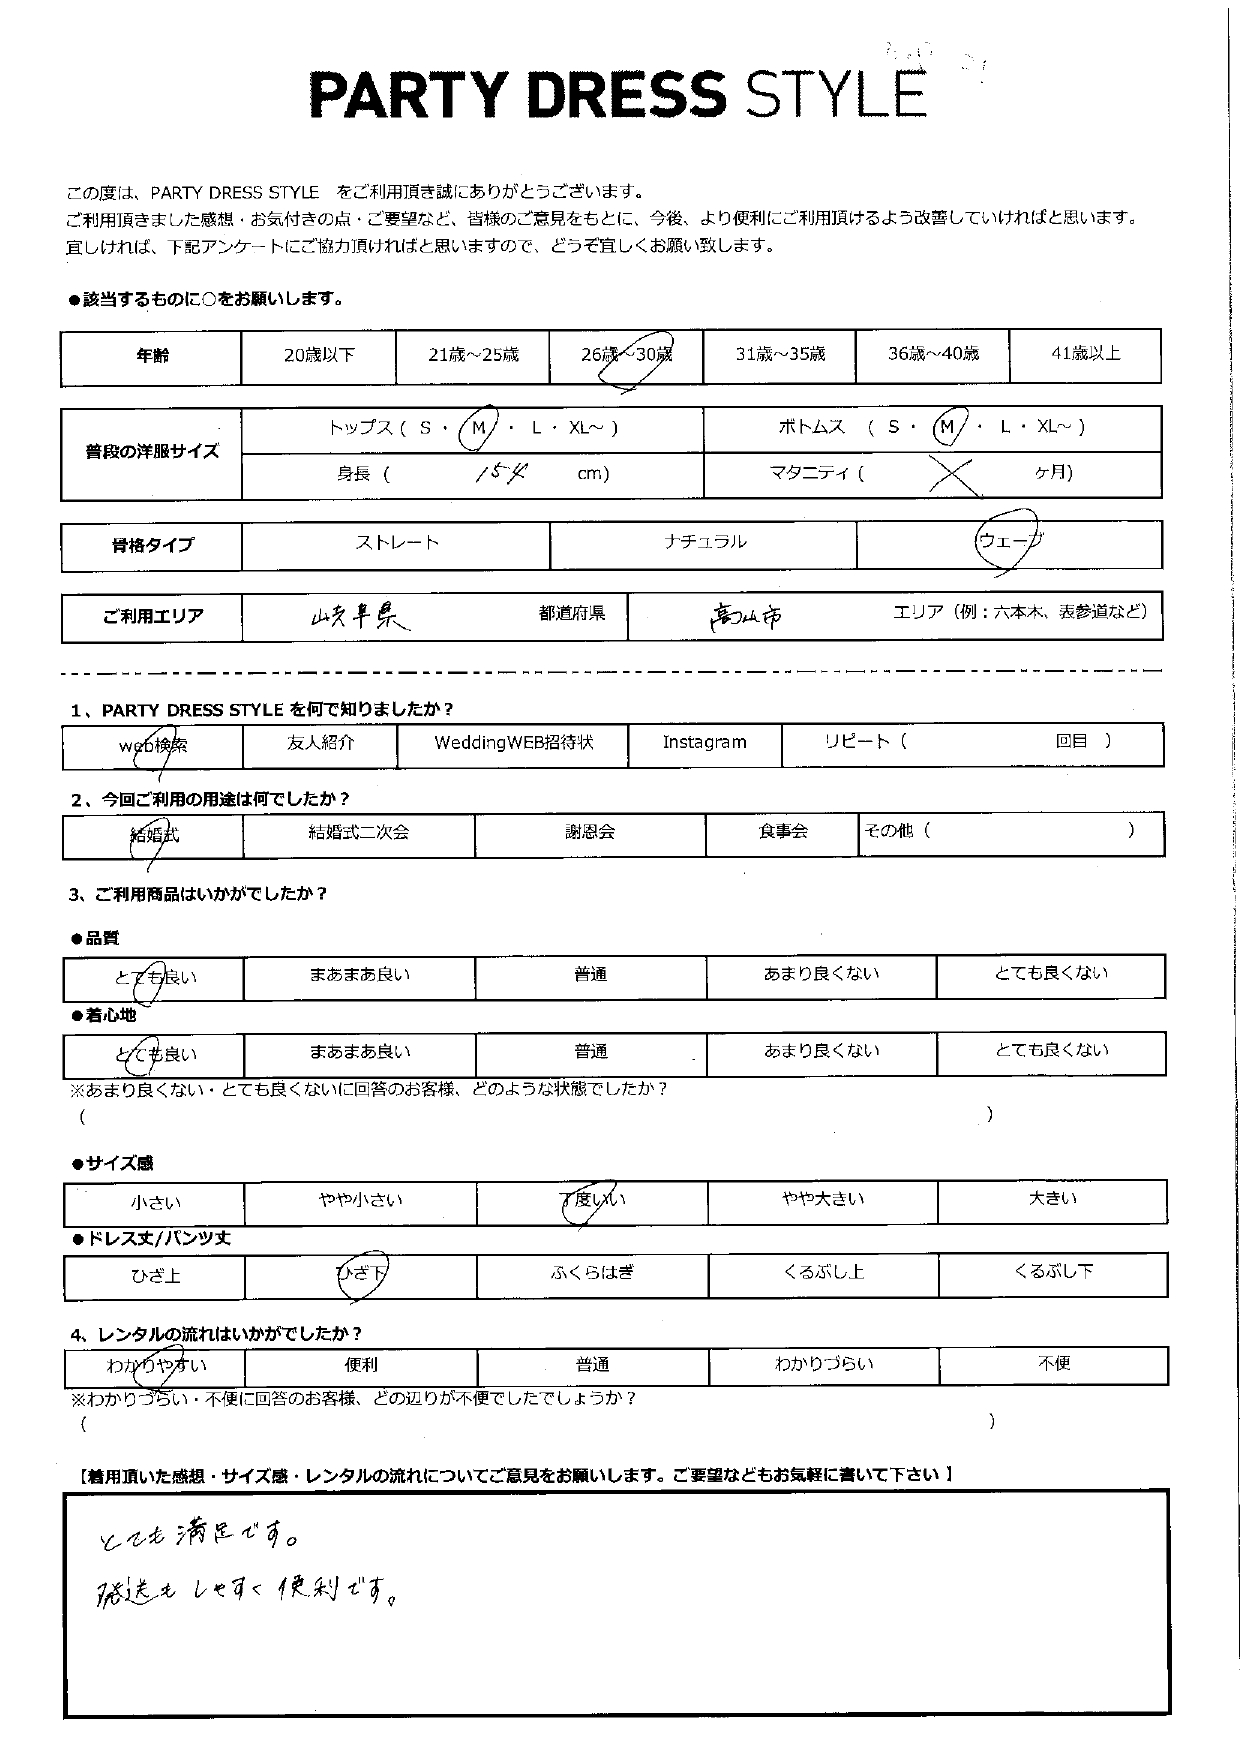 PARTY DRESS STYLE
この度は、PARTY DRESS STYLE をご利用頂き誠にありがとうございます。
ご利用頂きました感想・お気付きの点・ご要望など、皆様のご意見をもとに、今後、より便利にご利用頂けるよう改善していければと思います。
宜しければ、下記アンケートにご協力頂ければと思いますので、どうぞ宜しくお願い致します。
●該当するものに○をお願いします。
年齢 20歳以下 21歳～25歳 26歳～30歳 31歳～35歳 36歳～40歳 41歳以上
普段の洋服サイズ トップス ( S ・ M ・ L ・ XL～ ) ボトムス ( S ・ M ・ L ・ XL～ )
身長 ( 154 cm) マタニティ ( ヶ月)
骨格タイプ ストレート ナチュラル ウェーブ
ご利用エリア 岐阜県 都道府県 高山市 エリア（例：六本木、表参道など）
1、PARTY DRESS STYLE を何で知りましたか？
web検索 友人紹介 WeddingWEB招待状 Instagram リピート（ 回目 ）
2、今回ご利用の用途は何でしたか？
結婚式 結婚式二次会 謝恩会 食事会 その他（ ）
3、ご利用商品はいかがでしたか？
●品質
とても良い まあまあ良い 普通 あまり良くない とても良くない
●着心地
とても良い まあまあ良い 普通 あまり良くない とても良くない
※あまり良くない・とても良くないに回答のお客様、どのような状態でしたか？
（ ）
●サイズ感
小さい やや小さい 丁度いい やや大きい 大きい
●ドレス丈/パンツ丈
ひざ上 ひざ下 ふくらはぎ くるぶし上 くるぶし下
4、レンタルの流れはいかがでしたか？
わかりやすい 便利 普通 わかりづらい 不便
※わかりづらい・不便に回答のお客様、どの辺りが不便でしたでしょうか？
（ ）
【着用頂いた感想・サイズ感・レンタルの流れについてご意見をお願いします。ご要望などもお気軽に書いて下さい 】
とても満足です。
発送もしやすく便利です。